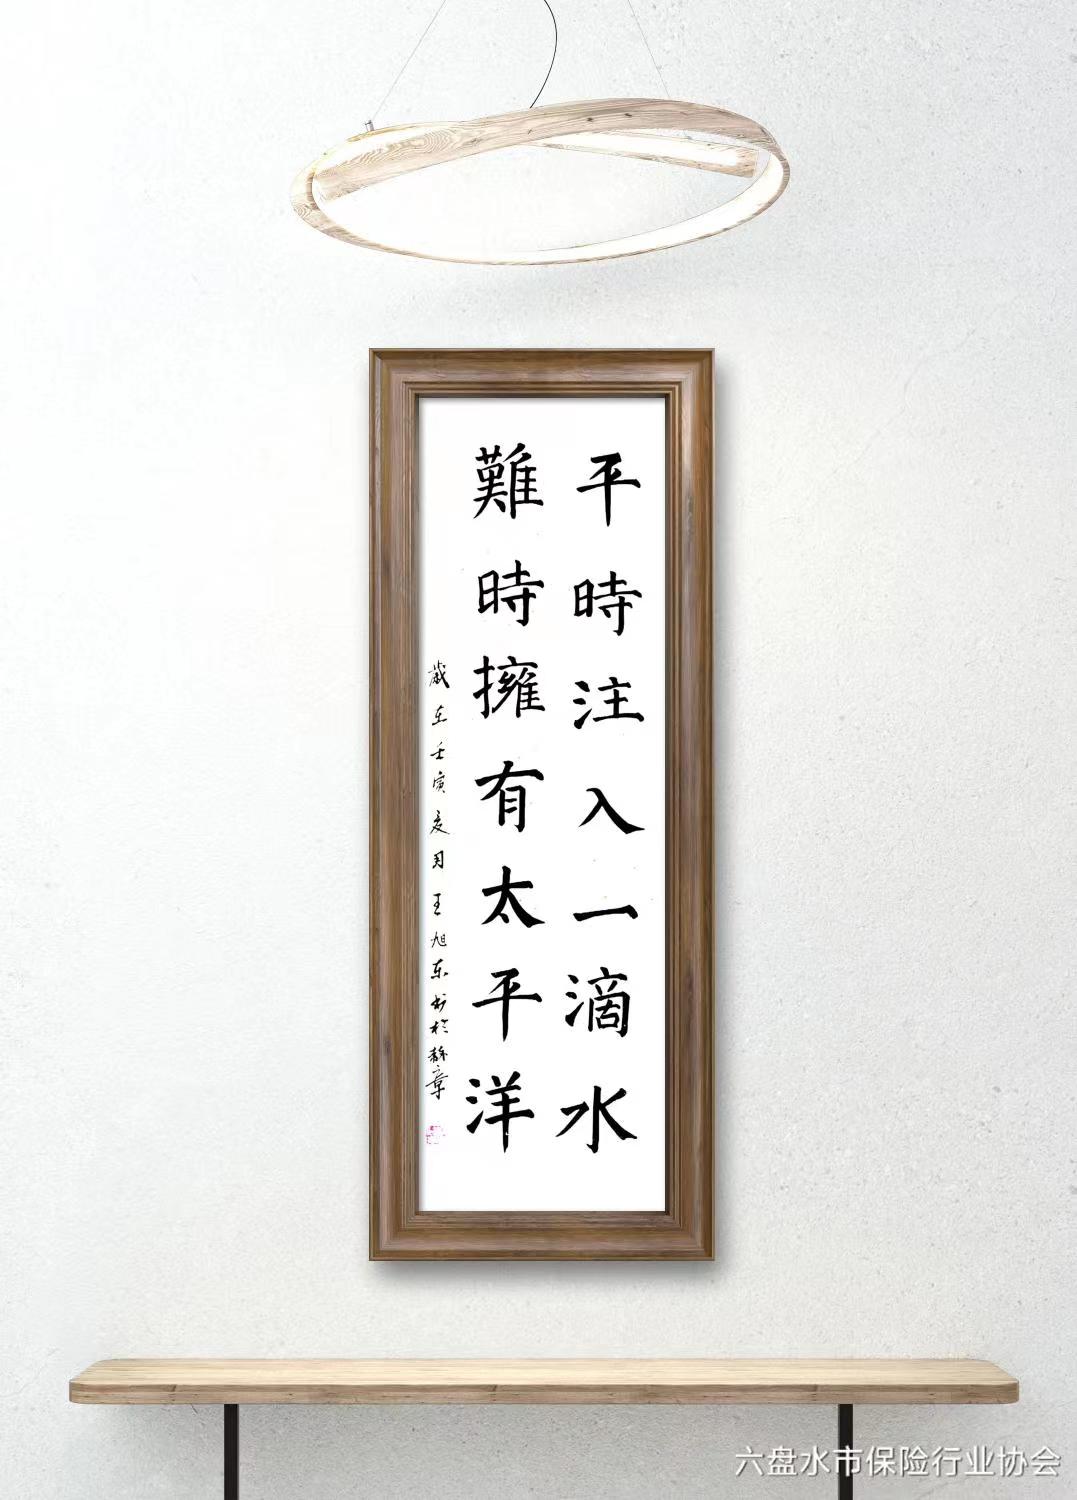 平時注入一滴水
難時擁有太平洋
歲在壬寅夏月王旭东书於
六盘水市保险行业协会